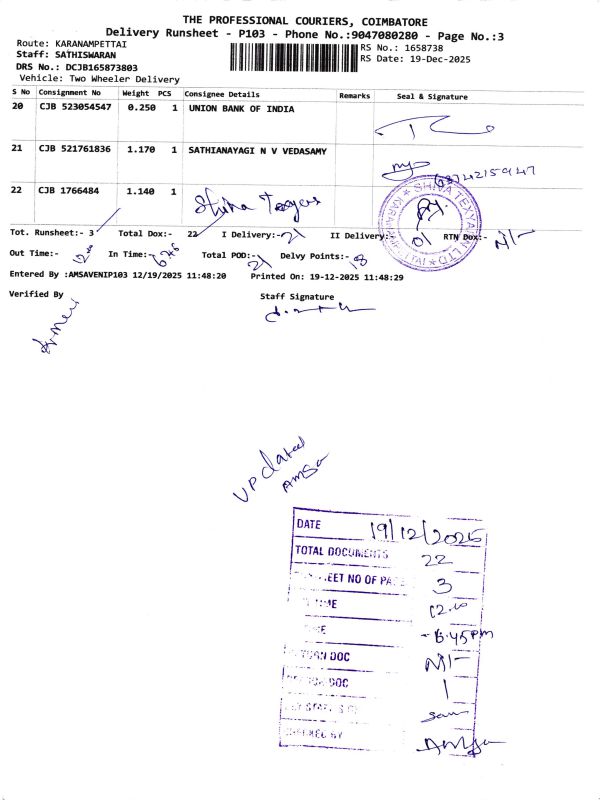 THE PROFESSIONAL COURIERS, COIMBATORE
Delivery Runsheet - P103 - Phone No.:9047080280 - Page No.:3
Route: KARANAMPETTAI
RS No.: 1658738
Staff: SATHISWARAN
RS Date: 19-Dec-2025
DRS No.: DCJB165873803
Vehicle: Two Wheeler Delivery
S No Consignment No Weight PCS Consignee Details Remarks Seal & Signature
20 CJB 523054547 0.250 1 UNION BANK OF INDIA
21 CJB 521761836 1.170 1 SATHIANAYAGI N V VEDASAMY
22 CJB 1766484 1.140 1 Shiva
Tot. Runsheet:- 3 Total Dox:- 22 I Delivery:- 21 II Delivery:- 01 RTN Dox:- Nil-
Out Time:- In Time:- Total POD:- 21 Delvy Points:- 18
Entered By :AMSAVENIP103 12/19/2025 11:48:20 Printed On: 19-12-2025 11:48:29
Verified By Staff Signature
UPdated
Amsa
DATE 19/12/2025
TOTAL DOCUMENTS 22
EET NO OF PA 3
TIME 12.00
- 6.45 pm
DOC Nil-
DOC 1
BY Amsa